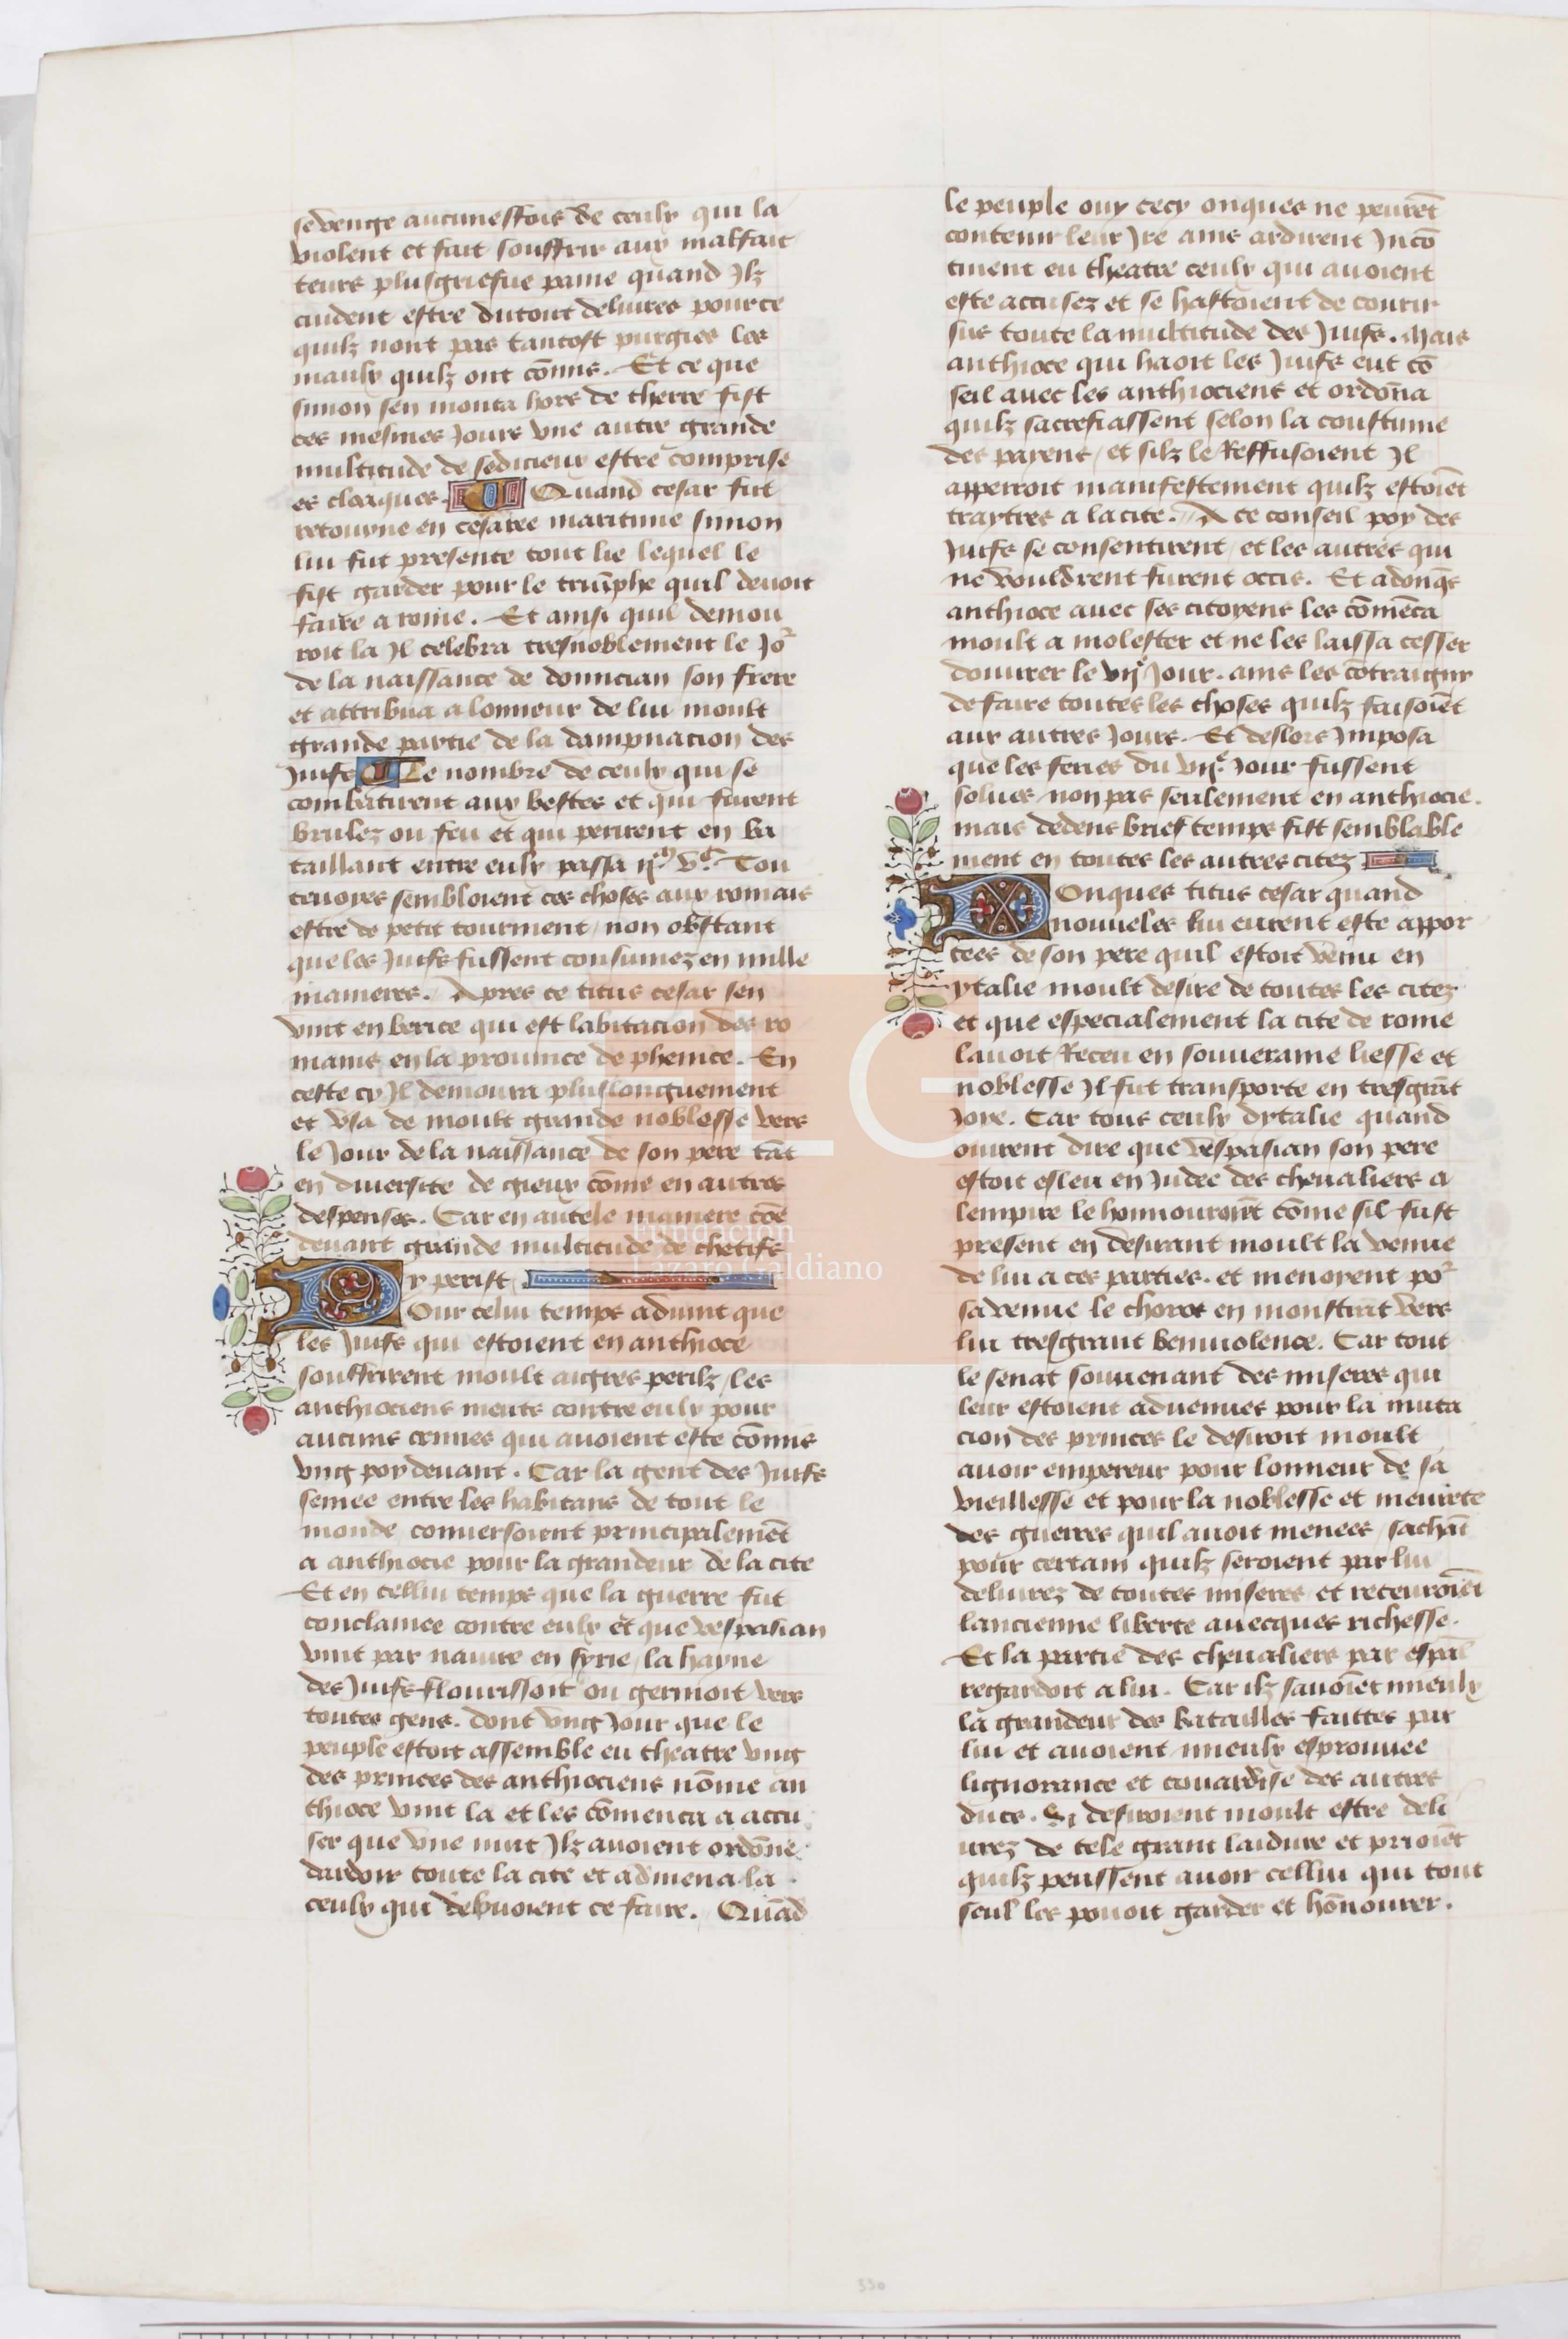 se venge aucuneffois de ceulx qui la
violent et fait souffrir aux malfait
teurs plusgriefue paine quand Jlz
cuident estre dutout deliures pource
quilz nont pas tantost purgies les
maulx quilz ont cōmis. Et ce que
simon sen monta hors de therre fist
ces mesmes Jours vne autre grande
multitude de sedicieux estre comprise
es cloaques. Quand cesar fut
retourne en cesaree maritime simon
lui fut presente tout lie lequel le
fist garder pour le triūphe quil deuoit
faire a rome. Et ainsi quil demou
roit la Jl celebra tresnoblement le Jor
de la naissance de domician son frere
et attribua a lonneur de lui moult
grande partie de la dampnacion des
Juifs Le nombre de ceulx qui se
combatirent aux bestes et qui furent
brulez ou feu et qui perirent en ba
taillant entre eulx passa ij.m v.c Tou
teuoyes sembloient ces choses aux romais
estre de petit tourment / non obstant
que les Juifs fussent consumez en mille
manieres. Apres ce titus cesar sen
vint en berice qui est labitacion des ro
mains en la prouince de phenice. En
ceste cy Jl demoura pluslonguement
et vsa de moult grande noblesse vers
le Jour de la naissance de son pere tāt
en diuersite de gieux cōme en autres
despenses. Car en autele maniere cōe
deuant grande multitude de chetifs
y perist
Pour celui temps aduint que
les Juifs qui estoient en anthioce
souffrirent moult aigres perilz / les
anthiociens meuts contre eulx pour
aucuns crimes qui auoient este cōmis
vng poy deuant. Car la gent des Juifs
semee entre les habitans de tout le
monde conuersoient principalemēt
a anthiocie pour la grandeur de la cite
Et en cellui temps que la guerre fut
conclamee contre eulx et que vespasian
vint par nauire en syrie / la hayne
des Juifs flourissoit ou germoit vers
toutes gens. dont vng Jour que le
peuple estoit assemble eu theatre vng
des princes des anthiociens nōme an
thioce vint la et les cōmenca a accu
ser que vne nuit Jlz auoient ordōne
dardoir toute la cite et admena la
ceulx qui debuoient ce faire. Quād
le peuple ouy cecy onques ne peurēt
contenir leur Jre ains ardirent Jncō
tinent eu theatre ceulx qui auoient
este accusez et se hastoient de courir
sus toute la multitude des Juifs. Mais
anthioce qui haoit les Juifs eut cō
seil auec les anthiociens et ordōna
quilz sacrefiassent selon la coustume
des payens / et silz le Reffusoient Jl
apperroit manifestement quilz estoiēt
traytres a la cite. A ce conseil poy des
Juifs se consentirent / et les autres qui
ne vouldrent furent occis. Et adonqs
anthioce auec ses citoyens les cōmēca
moult a molester et ne les laissa cesser
douurer le vije Jour. ains les cōtraigny
de faire toutes les choses quilz faisoiēt
aux autres Jours. Et deslors Jmposa
que les feries du vije Jour fussent
solues non pas seulement en anthiocie.
mais dedens brief temps fist semblable
ment en toutes les autres citez
Donques titus cesar quand
nouueles lui eurent este appor
tees de son pere quil estoit venu en
ytalie moult desire de toutes les citez
et que especialement la cite de rome
lauoit Receu en souueraine liesse et
noblesse Jl fut transporte en tresgrāt
Joye. Car tous ceulx dytalie quand
ouirent dire que vespasian son pere
estoit esleu en Judee des cheualiers a
lempire le honnouroiēt cōme sil fust
present en desirant moult la venue
de lui a ces parties. et menoyent por
sa venue le choros en monstrāt vers
lui tresgrant beniuolence. Car tout
le senat souuenant des miseres qui
leur estoient aduenues pour la muta
cion des princes le desiroit moult
auoir empereur pour lonneur de sa
vieillesse et pour la noblesse et meurete
des guerres quil auoit menees / sachāt
pour certain quilz seroient par lui
deliurez de toutes miseres et receuroiēt
lancienne liberte auecques richesse.
Et la partie des cheualiers par espāl
regardoit a lui. Car ilz sauoiēt mieulx
la grandeur des batailles faittes par
lui et auoient mieulx esprouuee
lignorance et couardise des autres
ducs. Si desiroient moult estre deli
urez de tele grant laidure et prioiēt
quilz peussent auoir cellui qui tout
seul les pouoit garder et hōnourer.
Fundación
Lázaro Galdiano
LG
330